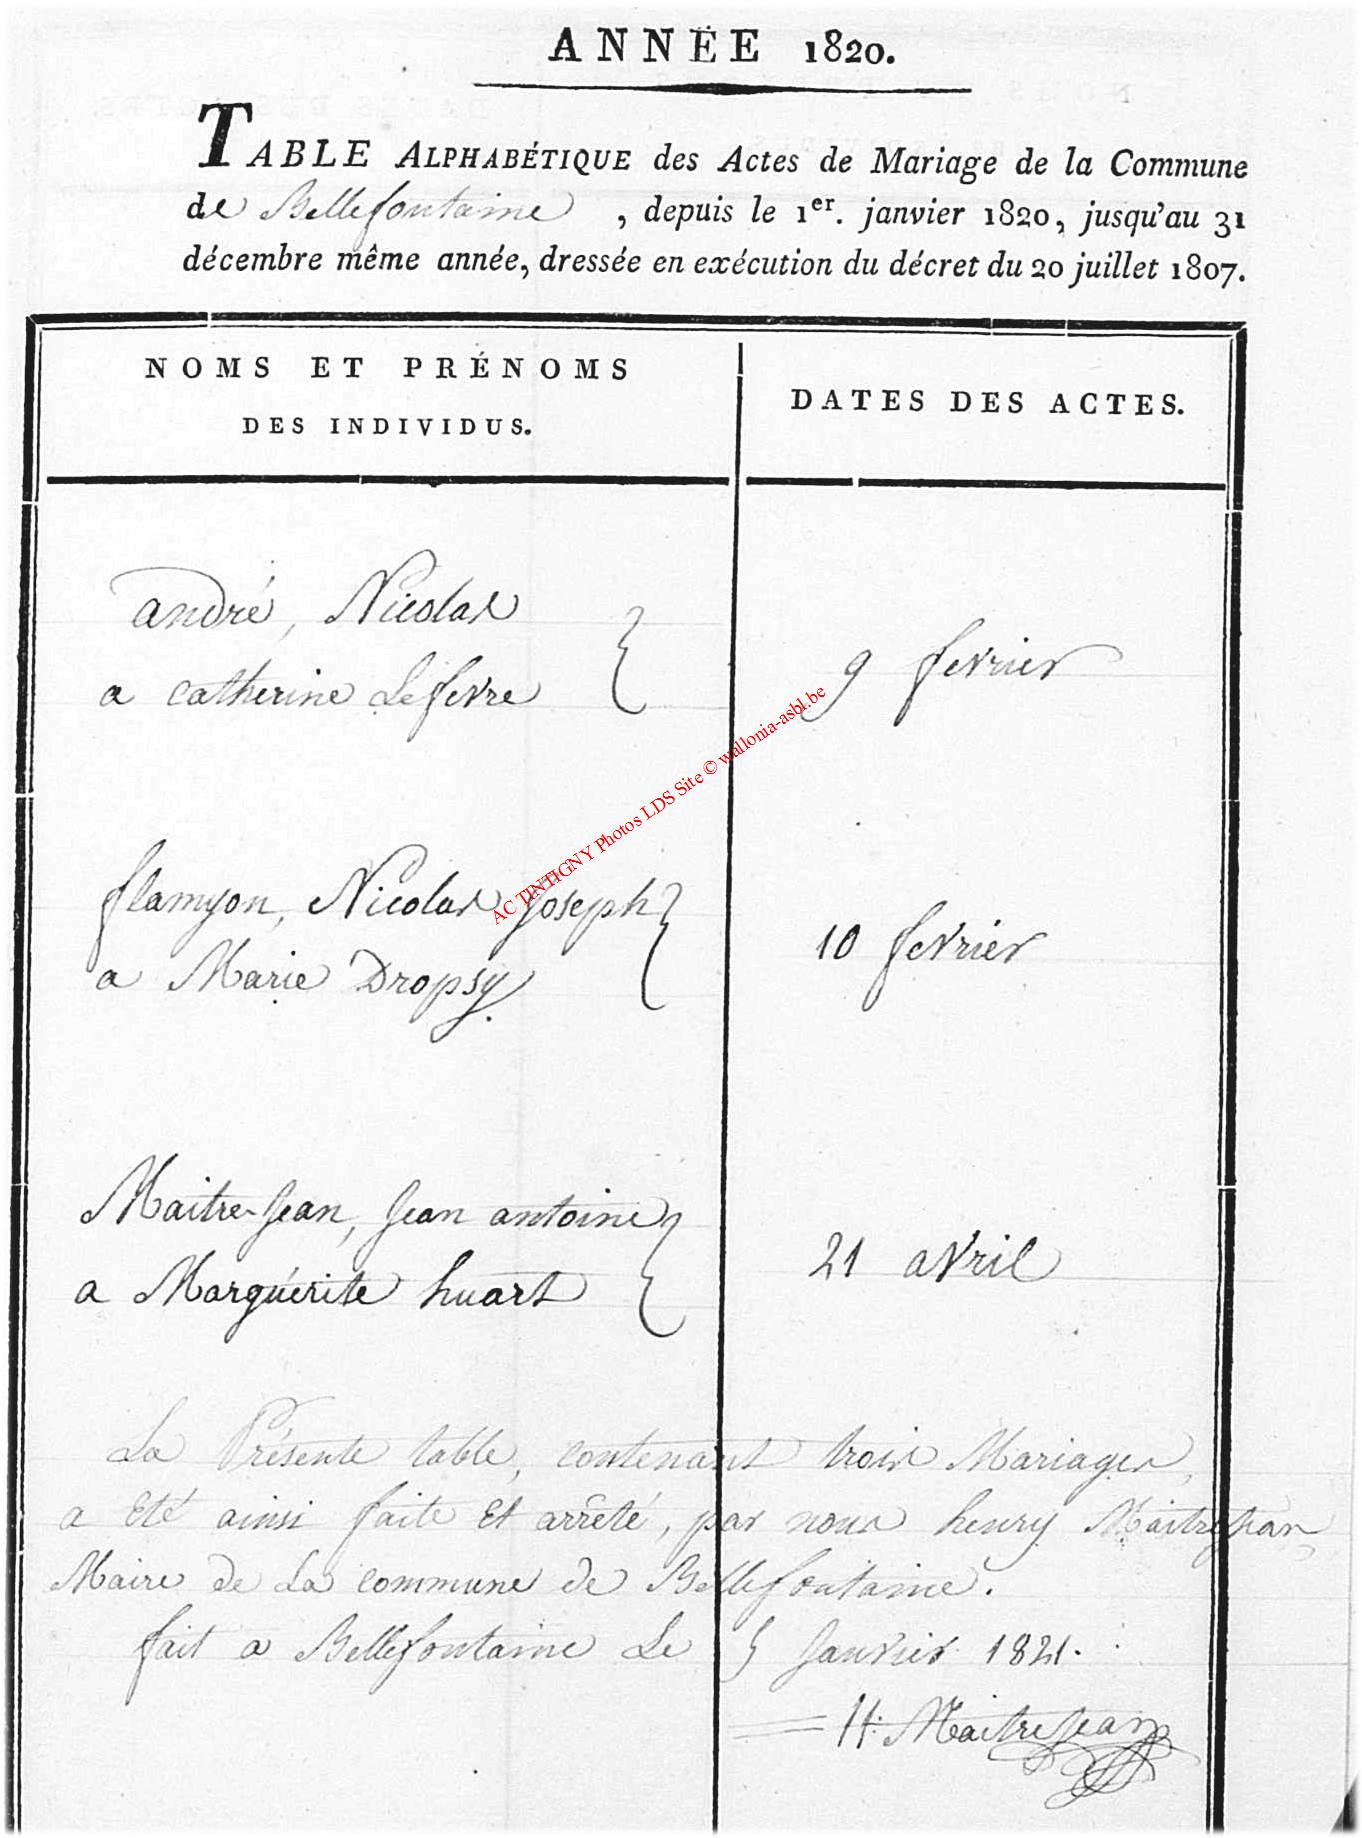 ANNÉE 1820.
TABLE ALPHABÉTIQUE des Actes de Mariage de la Commune
de Bellefontaine, depuis le 1er. janvier 1820, jusqu'au 31
décembre même année, dressée en exécution du décret du 20 juillet 1807.
NOMS ET PRÉNOMS
DES INDIVIDUS.
DATES DES ACTES.
andré, Nicolas
a catherine Lefevre
9 fevrier
flamyon, Nicolas Joseph
a Marie Dropsy.
10 fevrier
Maitre-Jean, Jean antoine
a Marguérite huart
21 avril
La Présente table, contenant trois Mariages,
a été ainsi faite et arrêté, par nous henry Maitrejean
Maire de La commune de Bellefontaine.
fait a Bellefontaine Le Janvier 1821.
H: MaitreJean
AC TINTIGNY Photos LDS Site © wallonia-asbl.be